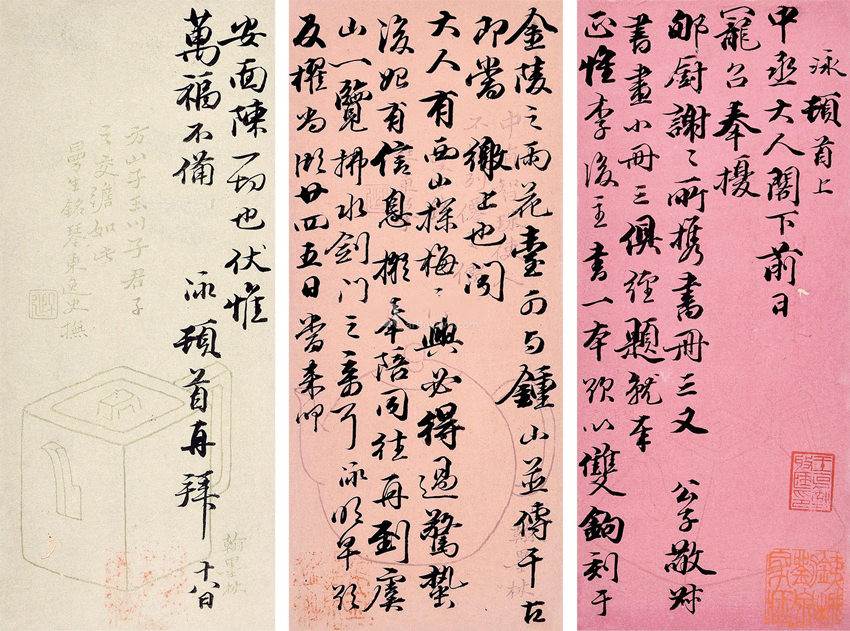 泳頓首上
中丞大人閣下前日
寵召奉擾
郇廚謝〻所攜書冊三又 公子敬
書畫小冊三俱經題就奉
正惟李後主書一本欲以雙鉤刻于
金陵之雨花臺可与鍾山並傳千古
即當繳上也聞
大人有西山探梅之興必得過驚蟄
後始有信息擬奉陪同往再到虞
山一覽拂水劍門之奇耳泳明早欲
反櫂 廿四五日當來叩
安面陳一切也伏惟
萬福不備
泳頓首再拜 十八日
方山子玉川子君子
之交澹如此
曼生銘琴東逸史撫
翰墨林